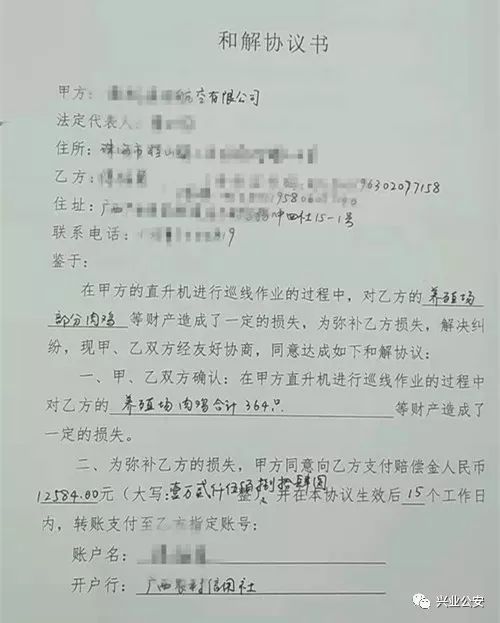 和解协议书
甲方： 航空有限公司
法定代表人：
住所：珠海市
乙方： 96302097158
住址：广西 中田社15-1号
联系电话： 819
鉴于：
在甲方的直升机进行巡线作业的过程中，对乙方的 养殖场
部分肉鸡 等财产造成了一定的损失，为弥补乙方损失，解决纠
纷，现甲、乙双方经友好协商，同意达成如下和解协议：
一、甲、乙双方确认：在甲方直升机进行巡线作业的过程中
对乙方的 养殖场肉鸡合计364只 等财产造成了
一定的损失。
二、为弥补乙方的损失，甲方同意向乙方支付赔偿金人民币
12584.00元（大写：壹万贰仟伍佰捌拾肆圆 ，并在本协议生效后15个工作日
内，转账支付至乙方指定账号：
账户名：
开户行：广西农村信用社
兴业公安